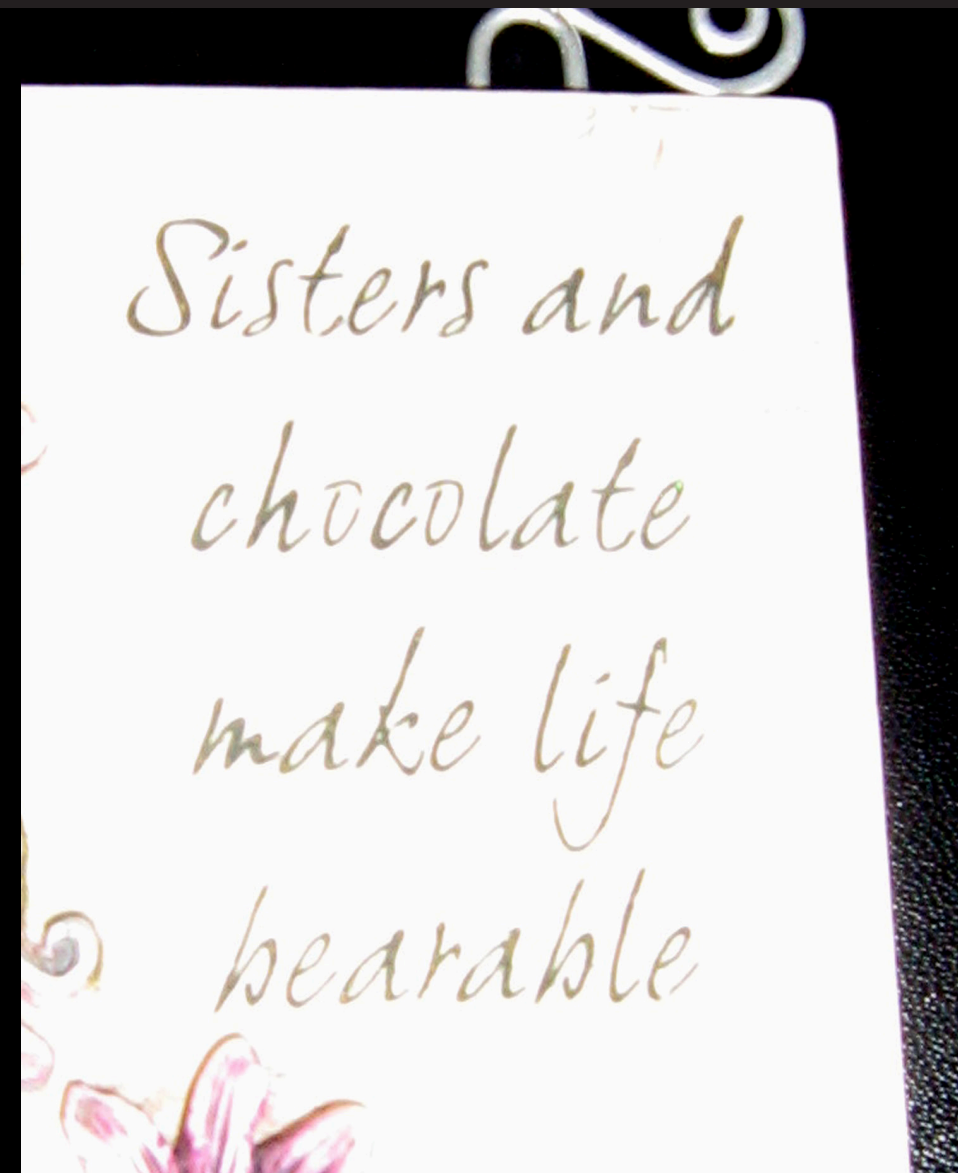 Sisters and
chocolate
make life
bearable